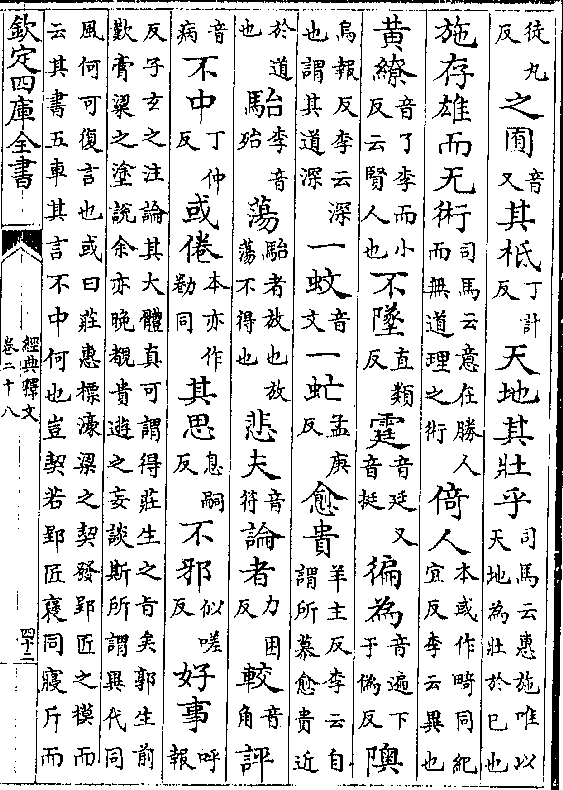 徒丸反之囿音又其柢丁計反天地其壯乎司馬云惠施唯以天地為壯於己也
施存雄而无術司馬云意在勝人而無道理之術倚人本或作畸同紀宜反李云異也
黃繚音了李而小反云賢人也不墜直類反霆音廷又音挺徧為音遍下于偽反隩
烏報反李云深也謂其道深一蚊音文一虻孟庚反愈貴羊主反李云自謂所慕愈貴近
於道也駘李音殆蕩駘者放也放蕩不得也悲夫音符論者力困反較音角評
音病不中丁仲反或倦本亦作勌同其思息嗣反不邪似嗟反好事呼報
反子玄之注論其大體真可謂得莊生之旨矣郭生前
歎膏粱之塗說余亦晚覩貴遊之妄談斯所謂異代同
風何可復言也或曰莊惠標濠梁之契發郢匠之模而
云其書五車其言不中何也豈契若郢匠褒同寢斤而
欽定四庫全書
經典釋文
卷二十八
四十二